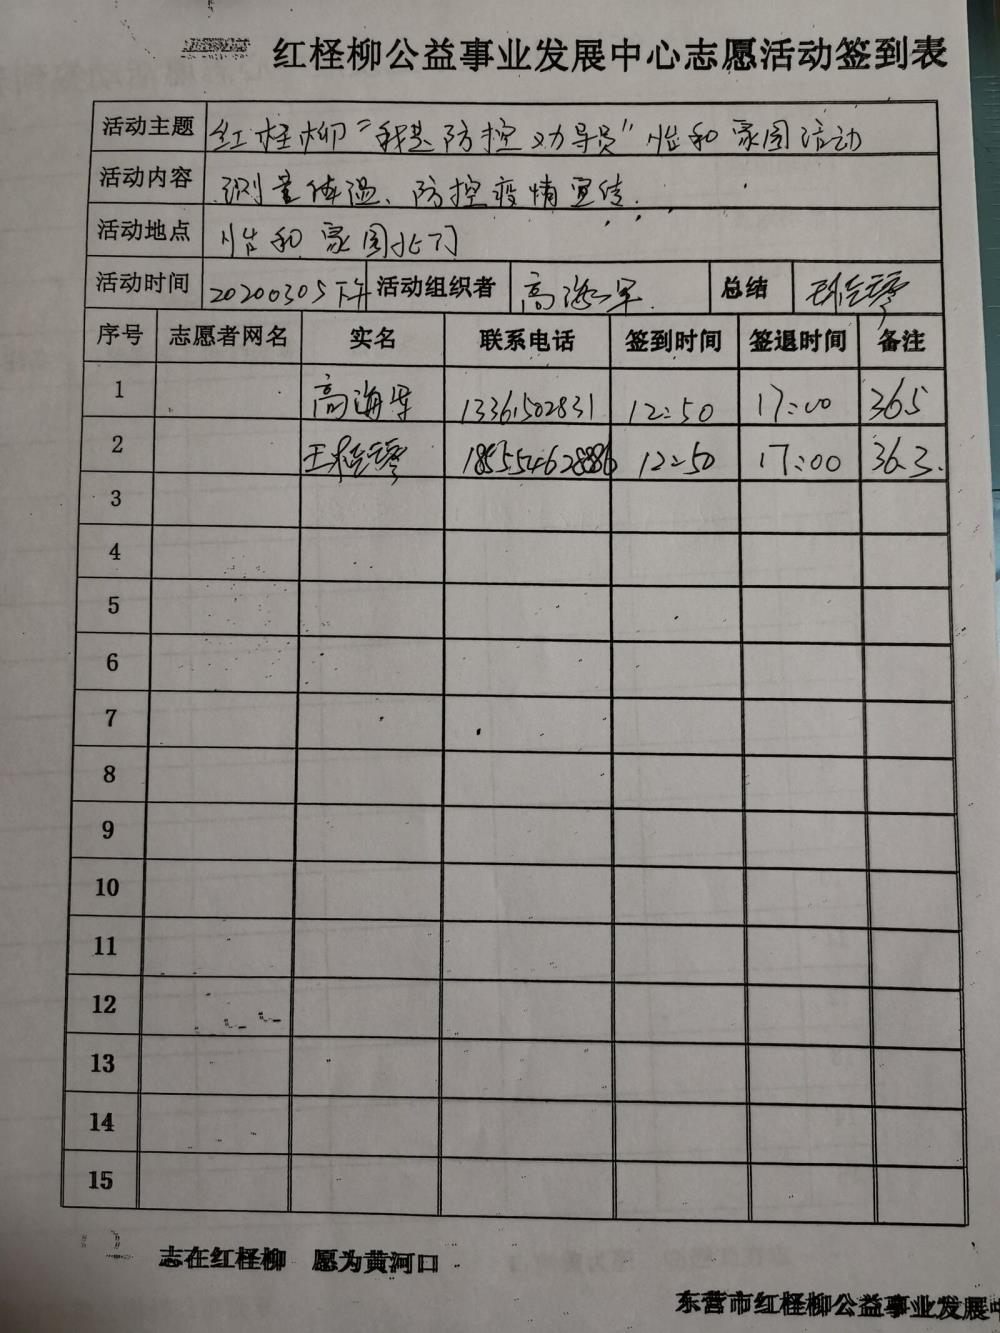 红柽柳公益事业发展中心志愿活动签到表
活动主题 红柽柳“我是防控劝导员”怡和家园活动
活动内容 测量体温、防控疫情宣传.
活动地点 怡和家园北门
活动时间 20200305下午 活动组织者 高海军. 总结
序号 志愿者网名 实名 联系电话 签到时间 签退时间 备注
1 高海军 13361502831 12:50 17:00 36.5
2 王 185554628886 12:50 17:00 36.3.
3
4
5
6
7
8
9
10
11
12
13
14
15
志在红柽柳 愿为黄河口
东营市红柽柳公益事业发展中